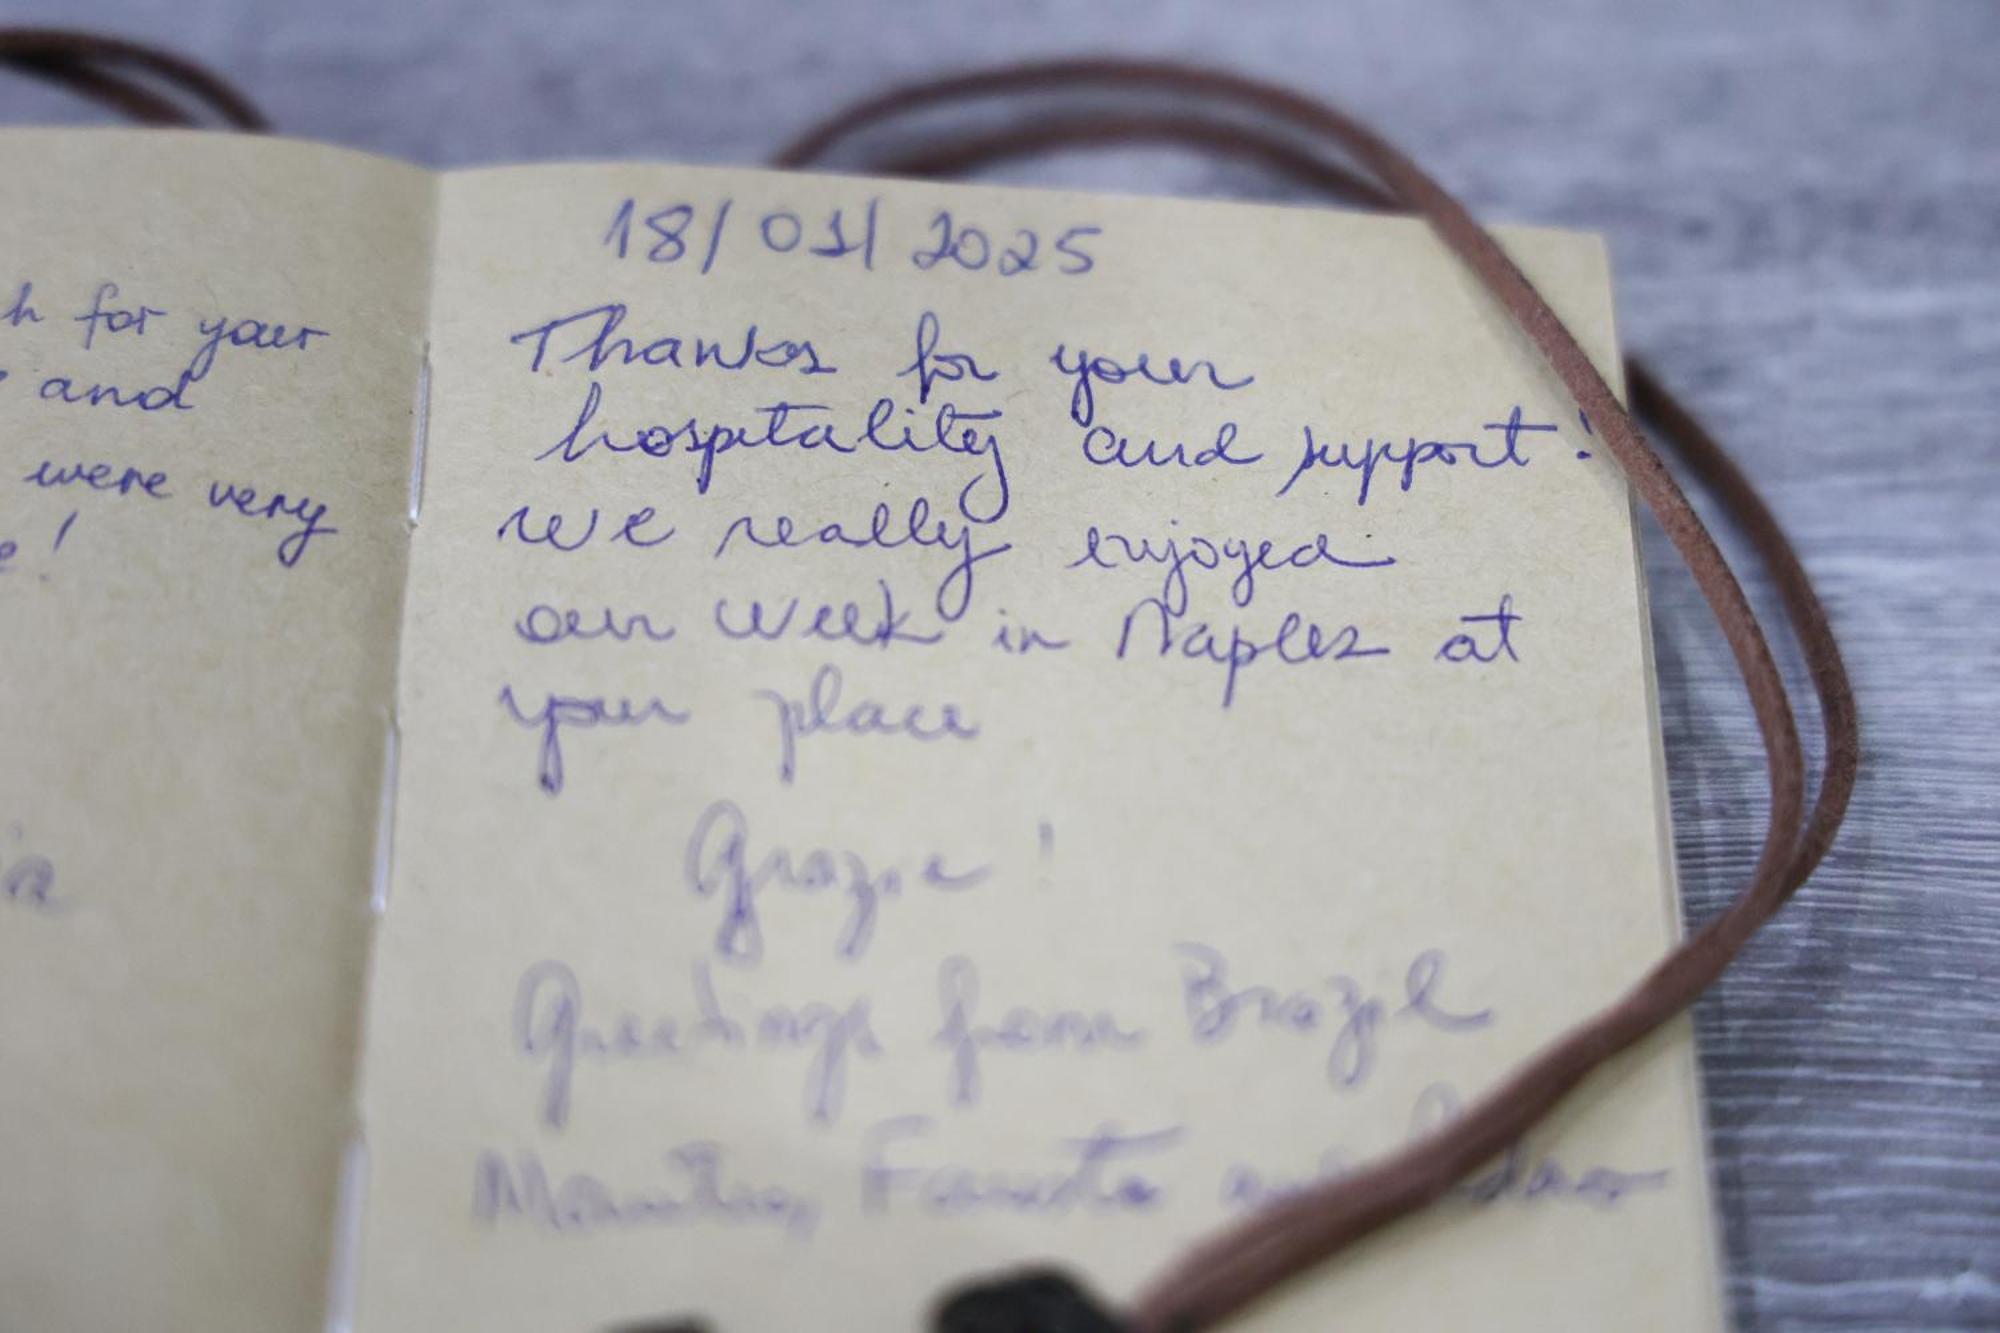 h for your
and
were very
e!
18/01/2025
Thanks for your
hospitality and support!
we really enjoyed
our week in Naples at
your place
Grazie!
Greetings from Brazil
Fausto